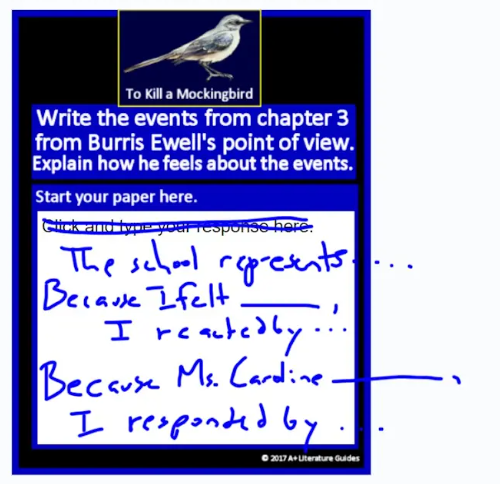 To Kill a Mockingbird
Write the events from chapter 3
from Burris Ewell's point of view.
Explain how he feels about the events.
Start your paper here.
Click and type your response here.
The school represents.....
Because I felt ______,
I reacted by ...
Because Ms. Cardine ______,
I responded by ...
© 2017 A+ Literature Guides